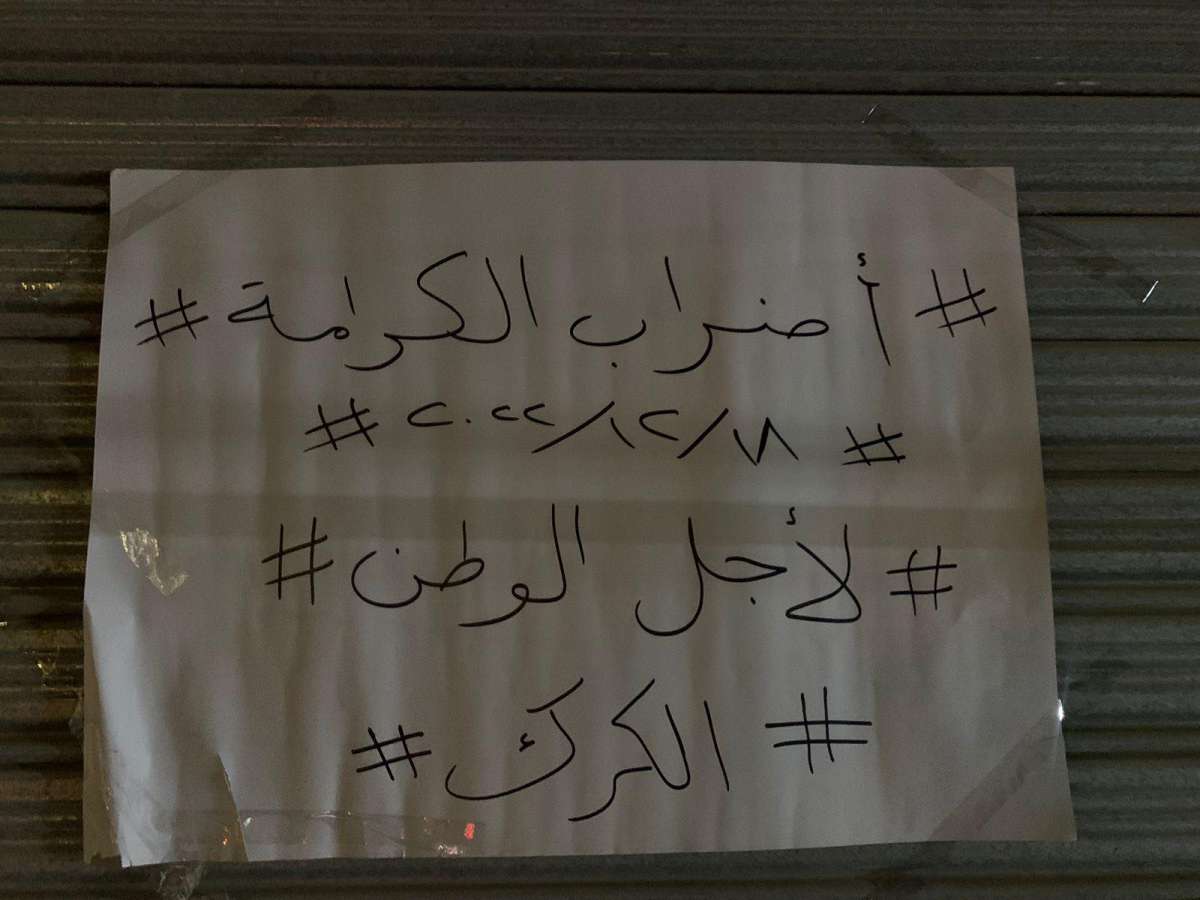 # أضراب الكرامة #
# ١٨/١٢/٢٠٢٢ #
# لأجل الوطن #
# الكرك #